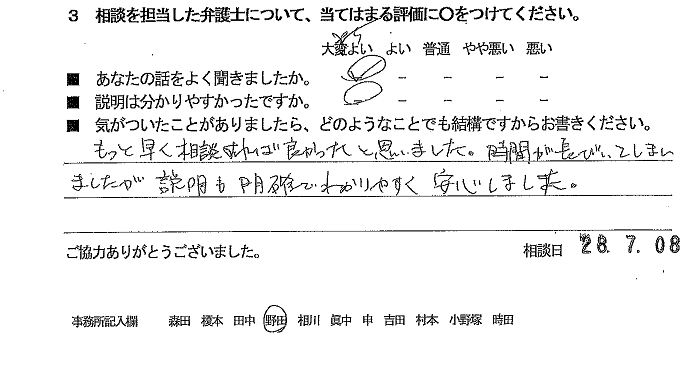 3 相談を担当した弁護士について、当てはまる評価に〇をつけてください。
大変よい よい 普通 やや悪い 悪い
■ あなたの話をよく聞きましたか。 - - - -
■ 説明は分かりやすかったですか。 - - - -
■ 気がついたことがありましたら、どのようなことでも結構ですからお書きください。
もっと早く相談すれば良かったと思いました。時間が長びいてしまい
ましたが説明も明確でわかりやすく安心しました。
ご協力ありがとうございました。 相談日 28.7.08
事務所記入欄 森田 榎本 田中 野田 相川 眞中 申 吉田 村本 小野塚 時田